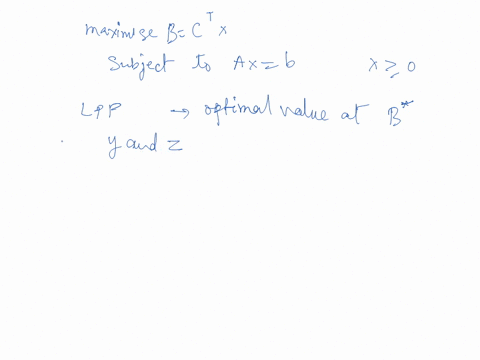 maximise B = C^T x
Subject to Ax = b x ≥ 0
LPP → optimal value at B*
y and z